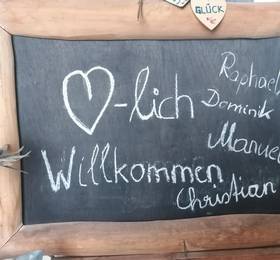 GLÜCK
♡-lich
Willkommen
Raphael
Dominik
Manuel
Christian